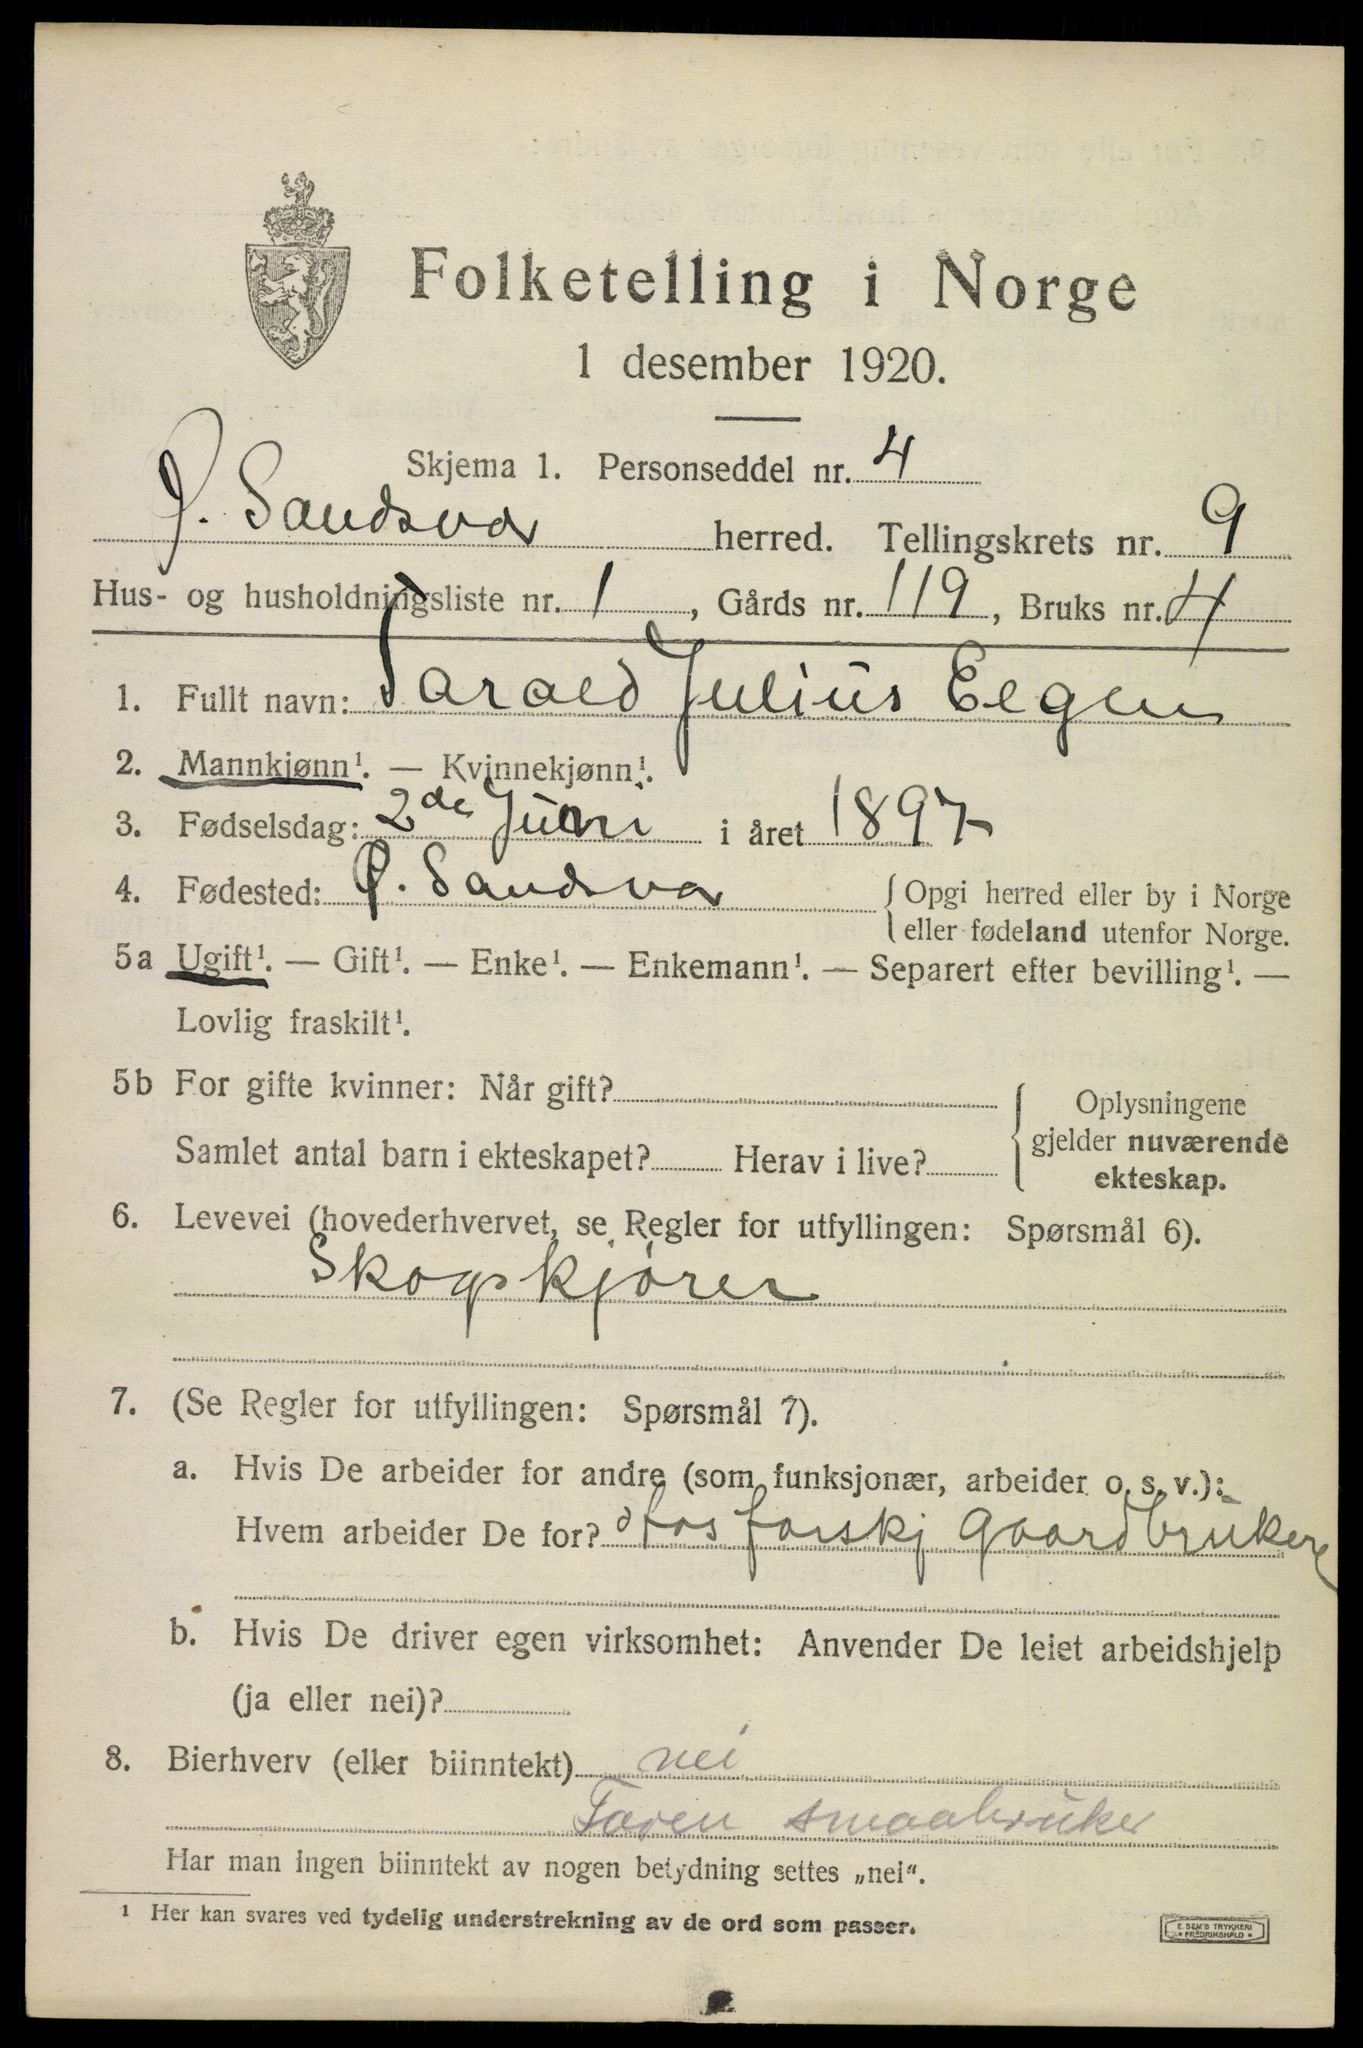 Folketelling i Norge
1 desember 1920.
Skjema 1. Personseddel nr. 4
Ø. Sandsvær herred. Tellingskrets nr. 9
Hus- og husholdningsliste nr. 1, Gårds nr. 119, Bruks nr. 4
1. Fullt navn: Tarald Julius Elgen
2. Mannkjønn¹. — Kvinnekjønn¹.
3. Fødselsdag: 2de Juni i året 1897
4. Fødested: Ø. Sandsvær { Opgi herred eller by i Norge
eller fødeland utenfor Norge.
5a Ugift¹. — Gift¹. — Enke¹. — Enkemann¹. — Separert efter bevilling¹. —
Lovlig fraskilt¹.
5b For gifte kvinner: Når gift?
Samlet antal barn i ekteskapet? Herav i live?
{ Oplysningene
gjelder nuværende
ekteskap.
6. Levevei (hovederhvervet, se Regler for utfyllingen: Spørsmål 6).
Skogskjører
7. (Se Regler for utfyllingen: Spørsmål 7).
a. Hvis De arbeider for andre (som funksjonær, arbeider o. s. v.):
Hvem arbeider De for? hos forskj gaardbrukere
b. Hvis De driver egen virksomhet: Anvender De leiet arbeidshjelp
(ja eller nei)?
8. Bierhverv (eller biinntekt) nei
Faren smaabruker
Har man ingen biinntekt av nogen betydning settes „nei“.
1 Her kan svares ved tydelig understrekning av de ord som passer.
E. SEM'S TRYKKERI
FREDRIKSHALD